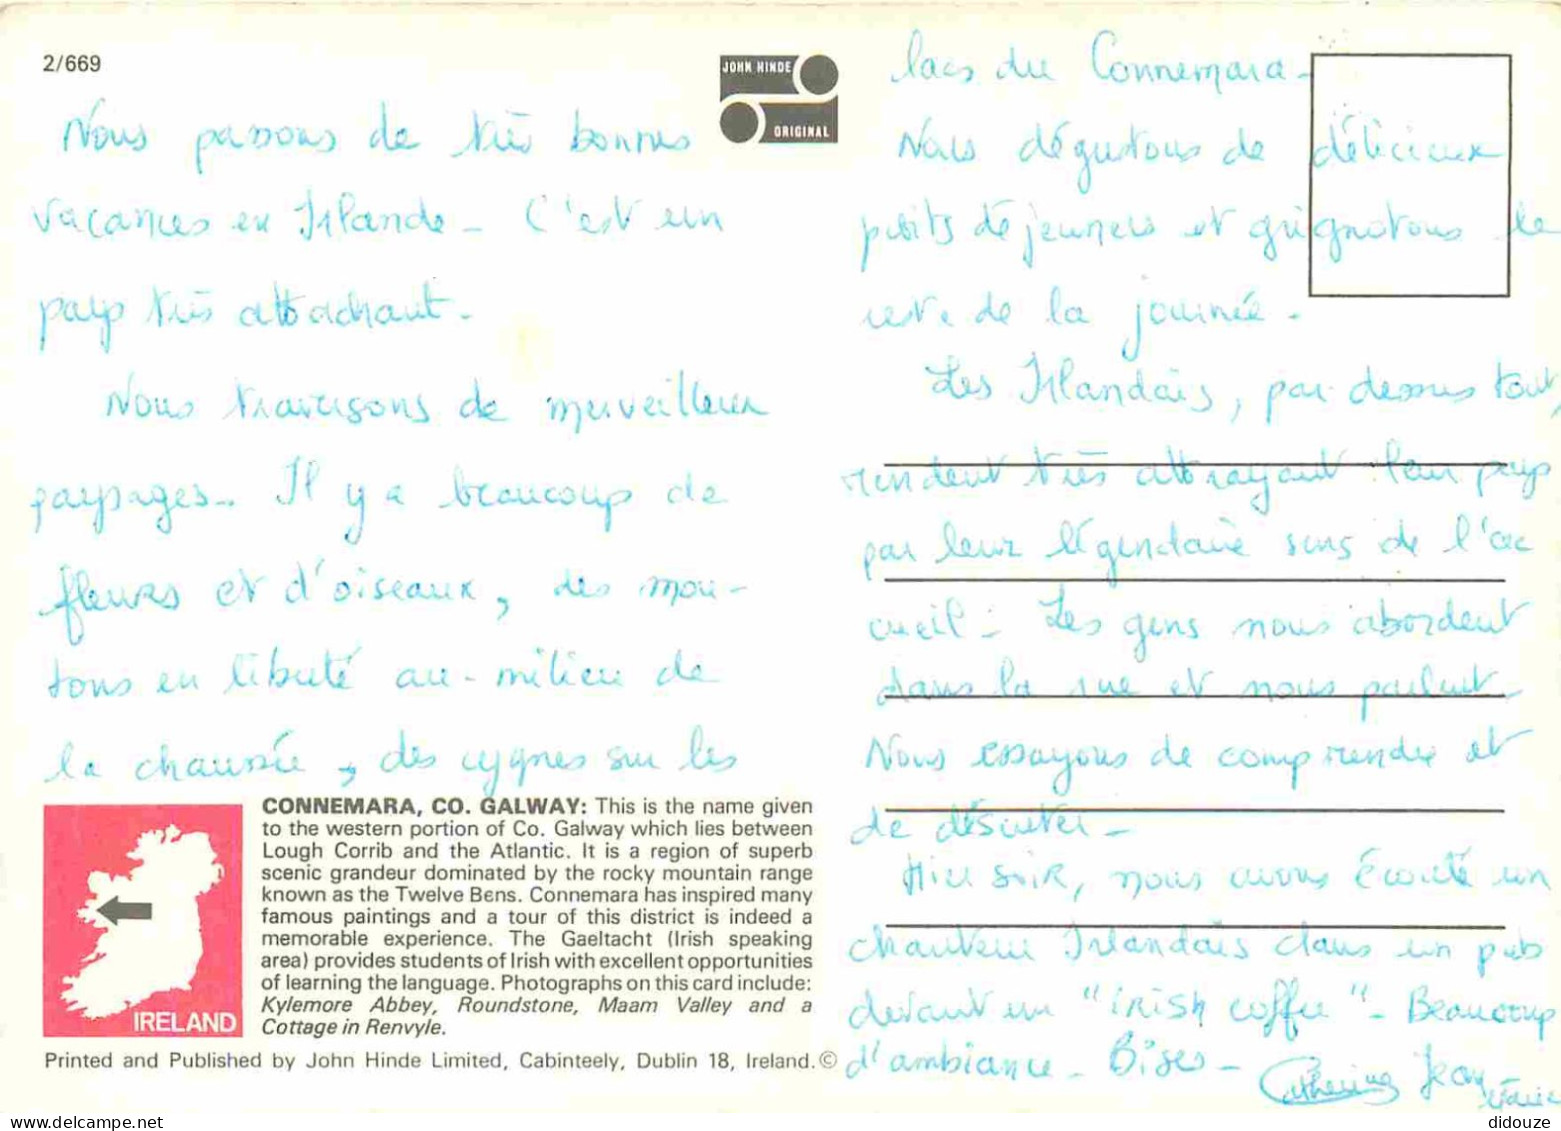 2/669
JOHN HINDE
ORIGINAL
Nous passons de très bonnes
vacances en Irlande - C'est un
pays très attachant -
Nous traversons de merveilleux
paysages - Il y a beaucoup de
fleurs et d'oiseaux, des mou-
tons en liberté au-milieu de
la chaussée, des cygnes sur les
lacs du Connemara -
Nous dégustons de délicieux
petits déjeuners et grignotons le
reste de la journée -
Les Irlandais, par-dessus tout,
rendent très attrayant leur pays
par leur légendaire sens de l'ac
cueil - Les gens nous abordent
dans la rue et nous parlent -
Nous essayons de comprendre et
de discuter -
Hier soir, nous avons écouté un
chanteur Irlandais dans un pub
devant un "irish coffee" - Beaucoup
d'ambiance - Bises -
Catherine Jean
CONNEMARA, CO. GALWAY: This is the name given
to the western portion of Co. Galway which lies between
Lough Corrib and the Atlantic. It is a region of superb
scenic grandeur dominated by the rocky mountain range
known as the Twelve Bens. Connemara has inspired many
famous paintings and a tour of this district is indeed a
memorable experience. The Gaeltacht (Irish speaking
area) provides students of Irish with excellent opportunities
of learning the language. Photographs on this card include:
Kylemore Abbey, Roundstone, Maam Valley and a
Cottage in Renvyle.
IRELAND
Printed and Published by John Hinde Limited, Cabinteely, Dublin 18, Ireland.©
didouze